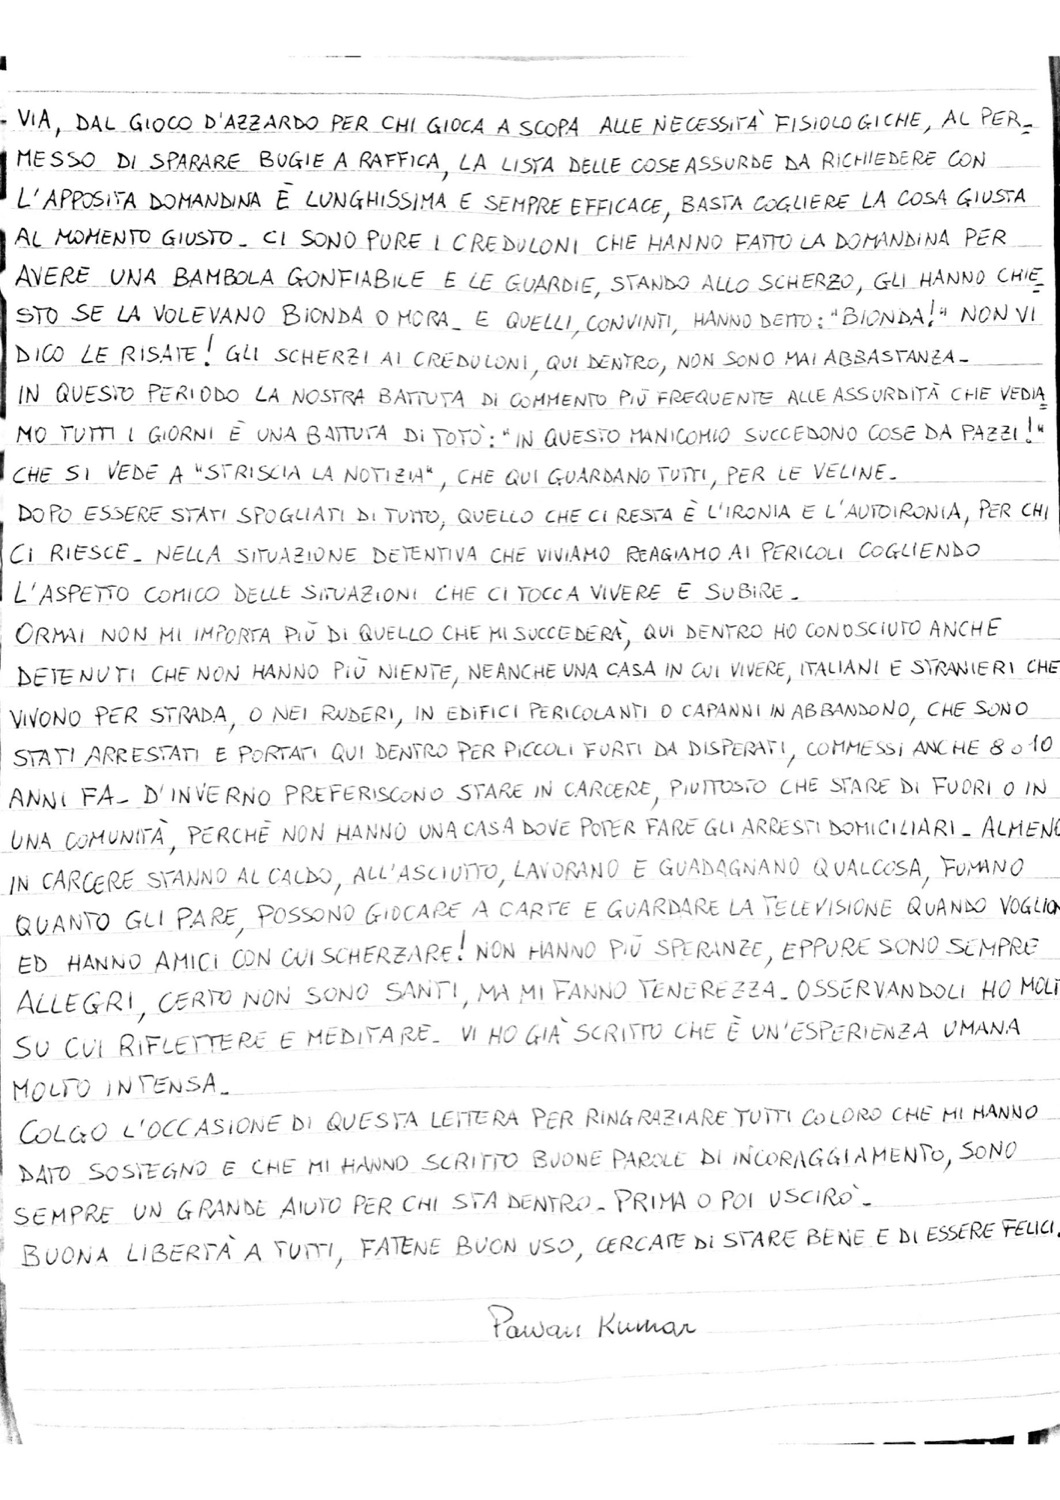 VIA, DAL GIOCO D'AZZARDO PER CHI GIOCA A SCOPA ALLE NECESSITÀ FISIOLOGICHE, AL PER_
MESSO DI SPARARE BUGIE A RAFFICA, LA LISTA DELLE COSE ASSURDE DA RICHIEDERE CON
L'APPOSITA DOMANDINA È LUNGHISSIMA E SEMPRE EFFICACE, BASTA COGLIERE LA COSA GIUSTA
AL MOMENTO GIUSTO_ CI SONO PURE I CREDULONI CHE HANNO FATTO LA DOMANDINA PER
AVERE UNA BAMBOLA GONFIABILE E LE GUARDIE, STANDO ALLO SCHERZO, GLI HANNO CHIE_
STO SE LA VOLEVANO BIONDA O MORA_ E QUELLI, CONVINTI, HANNO DETTO: "BIONDA!" NON VI
DICO LE RISATE! GLI SCHERZI AI CREDULONI, QUI DENTRO, NON SONO MAI ABBASTANZA_
IN QUESTO PERIODO LA NOSTRA BATTUTA DI COMMENTO PIÙ FREQUENTE ALLE ASSURDITÀ CHE VEDIA_
MO TUTTI I GIORNI È UNA BATTUTA DI TOTÒ: "IN QUESTO MANICOMIO SUCCEDONO COSE DA PAZZI!"
CHE SI VEDE A "STRISCIA LA NOTIZIA", CHE QUI GUARDANO TUTTI, PER LE VELINE_
DOPO ESSERE STATI SPOGLIATI DI TUTTO, QUELLO CHE CI RESTA È L'IRONIA E L'AUTOIRONIA, PER CHI
CI RIESCE_ NELLA SITUAZIONE DETENTIVA CHE VIVIAMO REAGIAMO AI PERICOLI COGLIENDO
L'ASPETTO COMICO DELLE SITUAZIONI CHE CI TOCCA VIVERE E SUBIRE_
ORMAI NON MI IMPORTA PIÙ DI QUELLO CHE MI SUCCEDERÀ, QUI DENTRO HO CONOSCIUTO ANCHE
DETENUTI CHE NON HANNO PIÙ NIENTE, NEANCHE UNA CASA IN CUI VIVERE, ITALIANI E STRANIERI CHE
VIVONO PER STRADA, O NEI RUDERI, IN EDIFICI PERICOLANTI O CAPANNI IN ABBANDONO, CHE SONO
STATI ARRESTATI E PORTATI QUI DENTRO PER PICCOLI FURTI DA DISPERATI, COMMESSI ANCHE 8 o 10
ANNI FA_ D'INVERNO PREFERISCONO STARE IN CARCERE, PIUTTOSTO CHE STARE DI FUORI O IN
UNA COMUNITÀ, PERCHÈ NON HANNO UNA CASA DOVE POTER FARE GLI ARRESTI DOMICILIARI_ ALMENO
IN CARCERE STANNO AL CALDO, ALL'ASCIUTTO, LAVORANO E GUADAGNANO QUALCOSA, FUMANO
QUANTO GLI PARE, POSSONO GIOCARE A CARTE E GUARDARE LA TELEVISIONE QUANDO VOGLION
ED HANNO AMICI CON CUI SCHERZARE! NON HANNO PIÙ SPERANZE, EPPURE SONO SEMPRE
ALLEGRI, CERTO NON SONO SANTI, MA MI FANNO TENEREZZA_ OSSERVANDOLI HO MOLT
SU CUI RIFLETTERE E MEDITARE_ VI HO GIÀ SCRITTO CHE È UN'ESPERIENZA UMANA
MOLTO INTENSA_
COLGO L'OCCASIONE DI QUESTA LETTERA PER RINGRAZIARE TUTTI COLORO CHE MI HANNO
DATO SOSTEGNO E CHE MI HANNO SCRITTO BUONE PAROLE DI INCORAGGIAMENTO, SONO
SEMPRE UN GRANDE AIUTO PER CHI STA DENTRO_ PRIMA O POI USCIRÒ_
BUONA LIBERTÀ A TUTTI, FATENE BUON USO, CERCATE DI STARE BENE E DI ESSERE FELICI.
Pawan Kumar